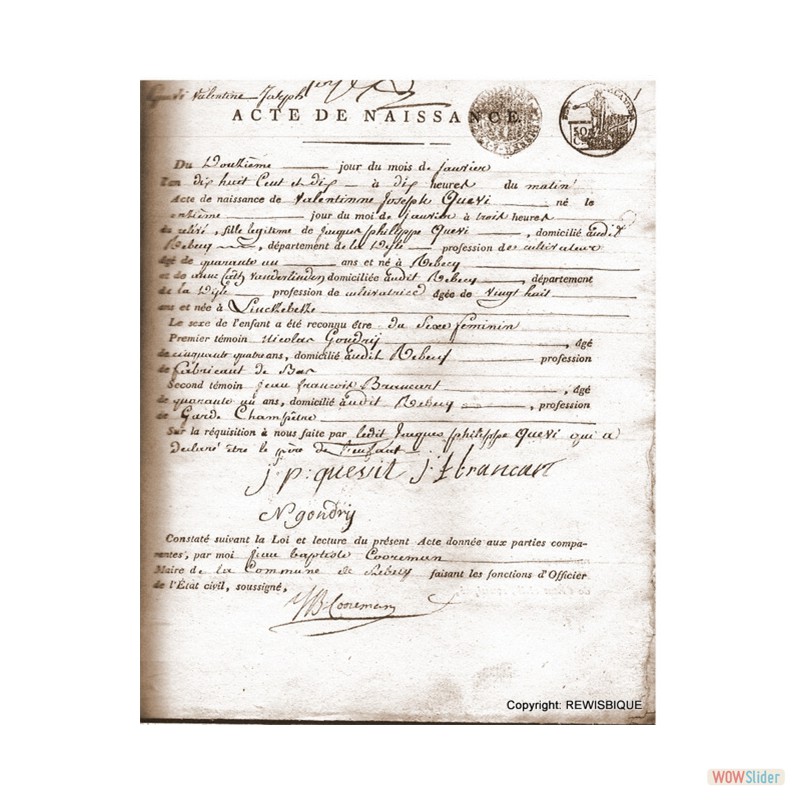 Quevi Valentine Joseph
ACTE DE NAISSANCE.
Du Douzième jour du mois de janvier
l'an dix huit Cent et dix à dix heures du matin
Acte de naissance de Valentinne Joseph Quevi né le
onzième jour du moi de janvier à trois heures
du relevé, fille legitime de jacques philippe Quevi, domicilié audit
Rebecq, département de la Dyle profession de cultivateur
âgé de quarante un ans et né à Rebecq
et de Vanderlinden domiciliée audit Rebecq, département
de la Dyle profession de cultivatrice âgée de vingt huit
ans et née à
Le sexe de l'enfant a été reconnu être du Sexe feminin
Premier témoin Nicolas Gondrij, âgé
de cinquante quatre ans, domicilié audit Rebecq profession
de fabricant de Bas
Second témoin jean françois Brancart, âgé
de quarante un ans, domicilié audit Rebecq, profession
de Garde Champêtre
Sur la réquisition à nous faite par ledit Jacques philippe Quevi qui a
declaré être le père de l'enfant
j: p: quevit j: f brancart
N gondrij
Constaté suivant la Loi et lecture du présent Acte donnée aux parties compa-
rantes, par moi Jean baptiste Cooreman
Maire de la Commune de Rebecq faisant les fonctions d'Officier
de l'État civil, soussigné,
JB Cooreman
Copyright: REWISBIQUE
WOWSlider